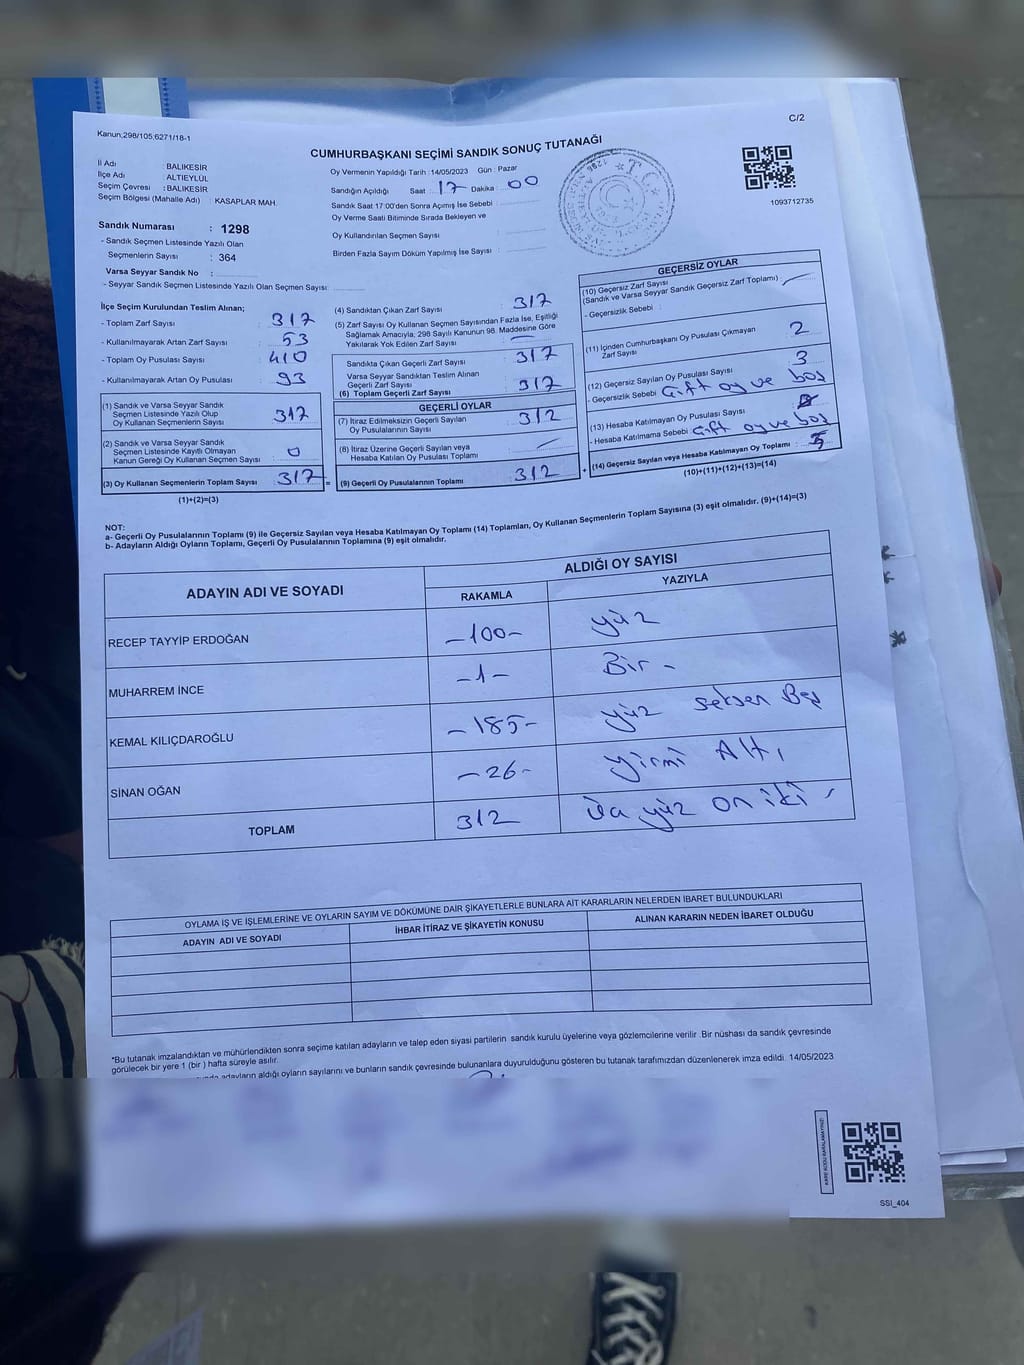 Kanun,298/105,6271/18-1
C/2
CUMHURBAŞKANI SEÇİMİ SANDIK SONUÇ TUTANAĞI
İl Adı : BALIKESİR
İlçe Adı : ALTIEYLÜL
Seçim Çevresi : BALIKESİR
Seçim Bölgesi (Mahalle Adı) : KASAPLAR MAH.
Oy Vermenin Yapıldığı Tarih : 14/05/2023 Gün : Pazar
Sandığın Açıldığı Saat : 17 Dakika : 00
Sandık Saat 17:00'den Sonra Açımış İse Sebebi :
Oy Verme Saati Bitiminde Sırada Bekleyen ve
Oy Kullandırılan Seçmen Sayısı
Birden Fazla Sayım Döküm Yapılmış İse Sayısı :
1093712735
Sandık Numarası : 1298
- Sandık Seçmen Listesinde Yazılı Olan
Seçmenlerin Sayısı : 364
Varsa Seyyar Sandık No :
- Seyyar Sandık Seçmen Listesinde Yazılı Olan Seçmen Sayısı:
İlçe Seçim Kurulundan Teslim Alınan;
- Toplam Zarf Sayısı : 317
- Kullanılmayarak Artan Zarf Sayısı : 53
- Toplam Oy Pusulası Sayısı : 410
- Kullanılmayarak Artan Oy Pusulası : 93
(1) Sandık ve Varsa Seyyar Sandık
Seçmen Listesinde Yazılı Olup
Oy Kullanan Seçmenlerin Sayısı : 317
(2) Sandık ve Varsa Seyyar Sandık
Seçmen Listesinde Kayıtlı Olmayan
Kanun Gereği Oy Kullanan Seçmen Sayısı : 0
(3) Oy Kullanan Seçmenlerin Toplam Sayısı : 317
(1)+(2)=(3)
(4) Sandıktan Çıkan Zarf Sayısı : 317
(5) Zarf Sayısı Oy Kullanan Seçmen Sayısından Fazla İse, Eşitliği
Sağlamak Amacıyla, 298 Sayılı Kanunun 98. Maddesine Göre
Yakılarak Yok Edilen Zarf Sayısı :
Sandıkta Çıkan Geçerli Zarf Sayısı : 317
Varsa Seyyar Sandıktan Teslim Alınan
Geçerli Zarf Sayısı
(6) Toplam Geçerli Zarf Sayısı : 317
GEÇERLİ OYLAR
(7) İtiraz Edilmeksizin Geçerli Sayılan
Oy Pusulalarının Sayısı : 312
(8) İtiraz Üzerine Geçerli Sayılan veya
Hesaba Katılan Oy Pusulası Toplamı :
(9) Geçerli Oy Pusulalarının Toplamı : 312
GEÇERSİZ OYLAR
(10) Geçersiz Zarf Sayısı
(Sandık ve Varsa Seyyar Sandık Geçersiz Zarf Toplamı) :
- Geçersizlik Sebebi :
(11) İçinden Cumhurbaşkanı Oy Pusulası Çıkmayan
Zarf Sayısı : 2
(12) Geçersiz Sayılan Oy Pusulası Sayısı : 3
- Geçersizlik Sebebi : Çift oy ve boş
(13) Hesaba Katılmayan Oy Pusulası Sayısı :
- Hesaba Katılmama Sebebi : Çift oy ve boş
(14) Geçersiz Sayılan veya Hesaba Katılmayan Oy Toplamı : 5
(10)+(11)+(12)+(13)=(14)
NOT:
a- Geçerli Oy Pusulalarının Toplamı (9) ile Geçersiz Sayılan veya Hesaba Katılmayan Oy Toplamı (14) Toplamları, Oy Kullanan Seçmenlerin Toplam Sayısına (3) eşit olmalıdır. (9)+(14)=(3)
b- Adayların Aldığı Oyların Toplamı, Geçerli Oy Pusulalarının Toplamına (9) eşit olmalıdır.
ADAYIN ADI VE SOYADI
ALDIĞI OY SAYISI
RAKAMLA YAZIYLA
RECEP TAYYİP ERDOĞAN -100- yüz
MUHARREM İNCE -1- Bir -
KEMAL KILIÇDAROĞLU -185- yüz seksen Beş
SİNAN OĞAN -26- yirmi Altı
TOPLAM 312 yüz on iki
OYLAMA İŞ VE İŞLEMLERİNE VE OYLARIN SAYIM VE DÖKÜMÜNE DAİR ŞİKAYETLERLE BUNLARA AİT KARARLARIN NELERDEN İBARET BULUNDUKLARI
ADAYIN ADI VE SOYADI İHBAR İTİRAZ VE ŞİKAYETİN KONUSU ALINAN KARARIN NEDEN İBARET OLDUĞU
*Bu tutanak imzalandıktan ve mühürlendikten sonra seçime katılan adayların ve talep eden siyasi partilerin sandık kurulu üyelerine veya gözlemcilerine verilir. Bir nüshası da sandık çevresinde
görülecek bir yere 1 (bir ) hafta süreyle asılır.
adayların aldığı oyların sayılarını ve bunların sandık çevresinde bulunanlara duyurulduğunu gösteren bu tutanak tarafımızdan düzenlenerek imza edildi. 14/05/2023
KARE KODU KARALAMAYINIZ!
SSI_404